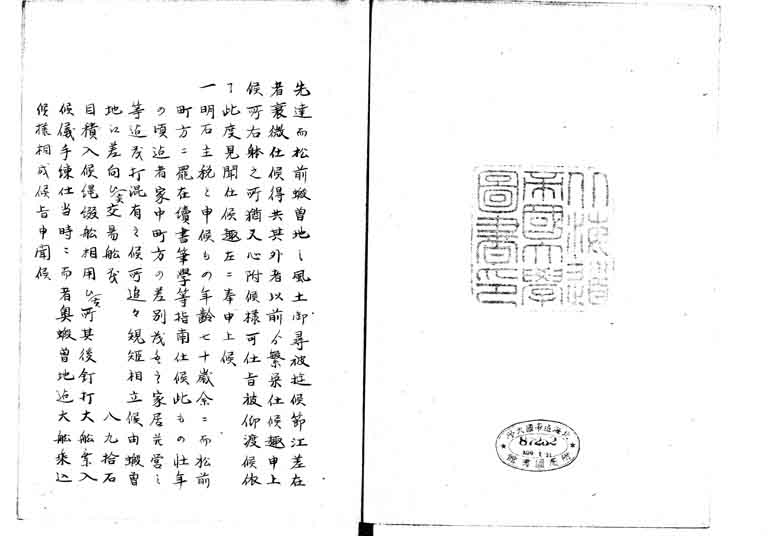 北海道
帝國大學
圖書印
北海道帝國大學
87252
附屬圖書館
先達而松前蝦曽地之風土御尋被遊候節江差在
者衰微仕候得共其外者以前ゟ繁栄仕候趣申上
候所右躰之所猶又心附候様可仕旨被仰渡候依
了此度見聞仕候趣左ニ奉申上候
一明石主税と申候もの年齢七十歳余ニ而松前
町方ニ罷在讀書筆學等指南仕候此もの壮年
の頃迠者家中町方の差別茂 家居 營之
等迠茂打混有之候所追々規矩相立候由蝦曽
地江差向候交易舩茂 八九拾石
目積入候縄綴舩相用候所其後釘打大舩案入
候儀手練仕当時ニ而者奥蝦曽地迠大舩乗込
候様相成候旨申聞候